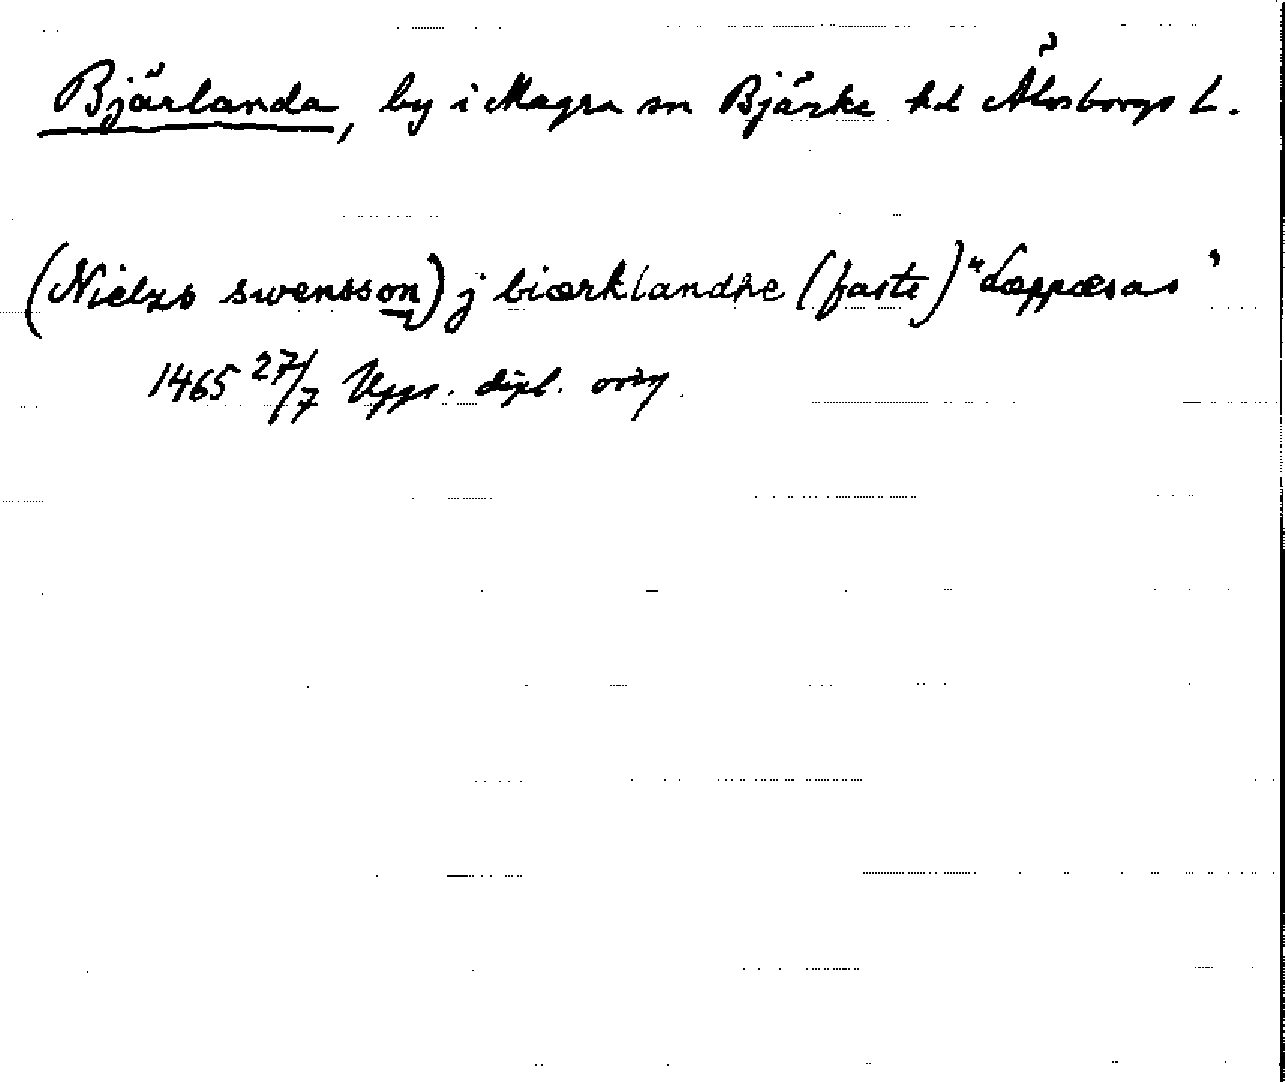 Bjärlanda, by i Magra sn Bjärke hd Älvsborgs L.
(Nielzs swensson) j biærklandhe (faste) "Læppæsas"
1465 27/7 Upps. dipl. orig.